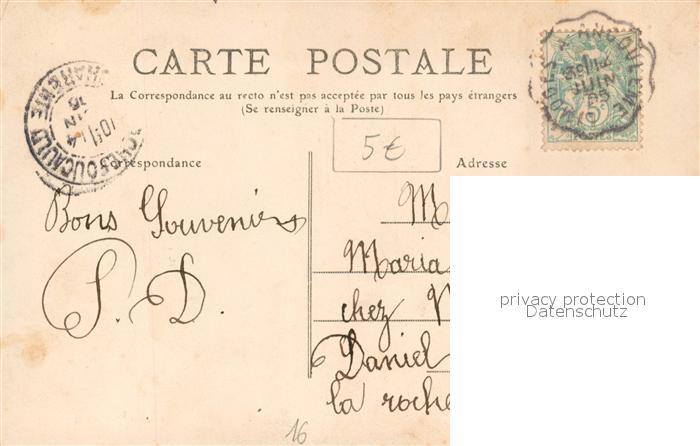 CARTE POSTALE
La Correspondance au recto n'est pas acceptée par tous les pays étrangers
(Se renseigner à la Poste)
5€
Correspondance
Adresse
Bons Souvenirs
S. D.
M
Maria
chez M
Daniel
la roche
privacy protection
Datenschutz
16